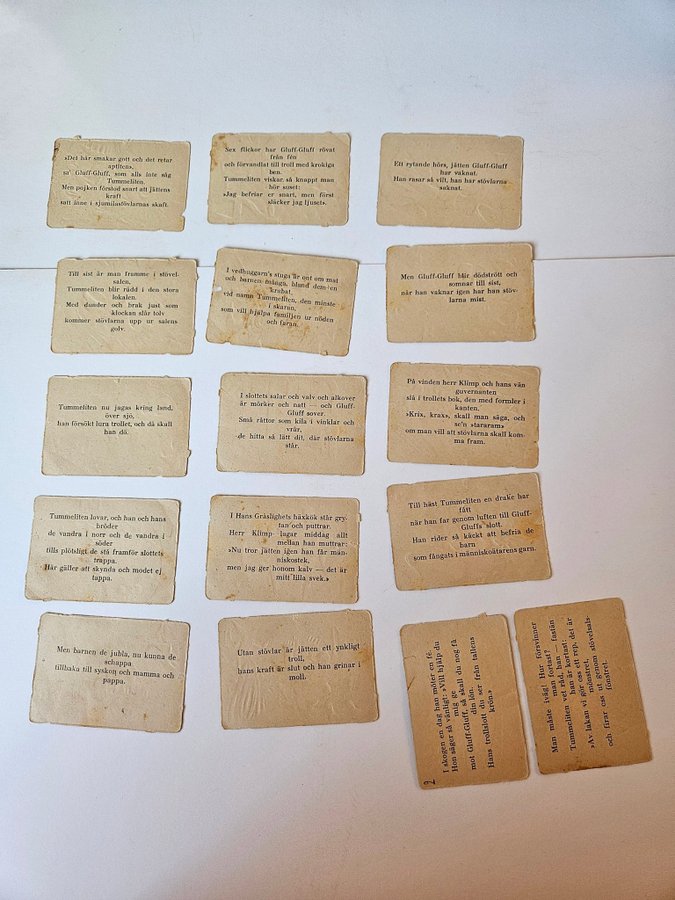 »Det här smakar gott och det retar
aptiten»,
sa' Gluff-Gluff, som alls inte såg
Tummeliten.
Men pojken förstod snart att jättens
kraft
satt inne i sjumilastövlarnas skaft.
Sex flickor har Gluff-Gluff rövat
från fén
och förvandlat till troll med krokiga
ben.
Tummeliten viskar så knappt man
hör suset:
»Jag befriar er snart, men först
släcker jag ljuset».
Ett rytande hörs, jätten Gluff-Gluff
har vaknat.
Han rasar så vilt, han har stövlarna
saknat.
Till sist är man framme i stövel-
salen.
Tummeliten blir rädd i den stora
lokalen.
Med dunder och brak just som
klockan slår tolv
kommer stövlarna upp ur salens
golv.
I vedhuggarn's stuga är ont om mat
och barnen många, bland dem en
krabat
vid namn Tummeliten, den minste
i skaran,
som vill hjälpa familjen ur nöden
och faran.
Men Gluff-Gluff blir dödstrött och
somnar till sist,
när han vaknar igen har han stöv-
larna mist.
Tummeliten nu jagas kring land,
över sjö,
han försökt lura trollet, och då skall
han dö.
I slottets salar och valv och alkover
är mörker och natt — och Gluff-
Gluff sover.
Små råttor som kila i vinklar och
vrår,
de hitta så lätt dit, där stövlarna
står.
På vinden herr Klimp och hans vän
guvernanten
slå i trollets bok, den med formler i
kanten.
»Krix, krax», skall man säga, och
se'n »tararam»
om man vill att stövlarna skall kom-
ma fram.
Tummeliten lovar, och han och hans
bröder
de vandra i norr och de vandra i
söder
tills plötsligt de stå framför slottets
trappa.
Här gäller att skynda och modet ej
tappa.
I Hans Gräslighets häxkök står gry-
tan och puttrar.
Herr Klimp lagar middag allt
mellan han muttrar:
»Nu tror jätten igen han får män-
niskostek,
men jag ger honom kalv — det är
mitt lilla svek.»
Till häst Tummeliten en drake har
fått
när han far genom luften till Gluff-
Gluffs slott.
Han rider så käckt att befria de
barn
som fångats i människoätarens garn.
Men barnen de jubla, nu kunna de
schappa
tillbaka till syskon och mamma och
pappa.
Utan stövlar är jätten ett ynkligt
troll,
hans kraft är slut och han grinar i
moll.
I skogen en dag han möter en fé.
Hon säger så vänligt: »Vill hjälp du
mig ge
mot Gluff-Gluff, så skall du nog få
din lön.
Hans trollslott du ser från tallens
krön.»
Man måste iväg! Hur försvinner
man fortast?
Tummeliten vet råd, han — fastän
han är kortast:
»Av lakan vi gör oss ett rep, det är
mönstret,
och firar oss ut genom stövelsals-
fönstret.